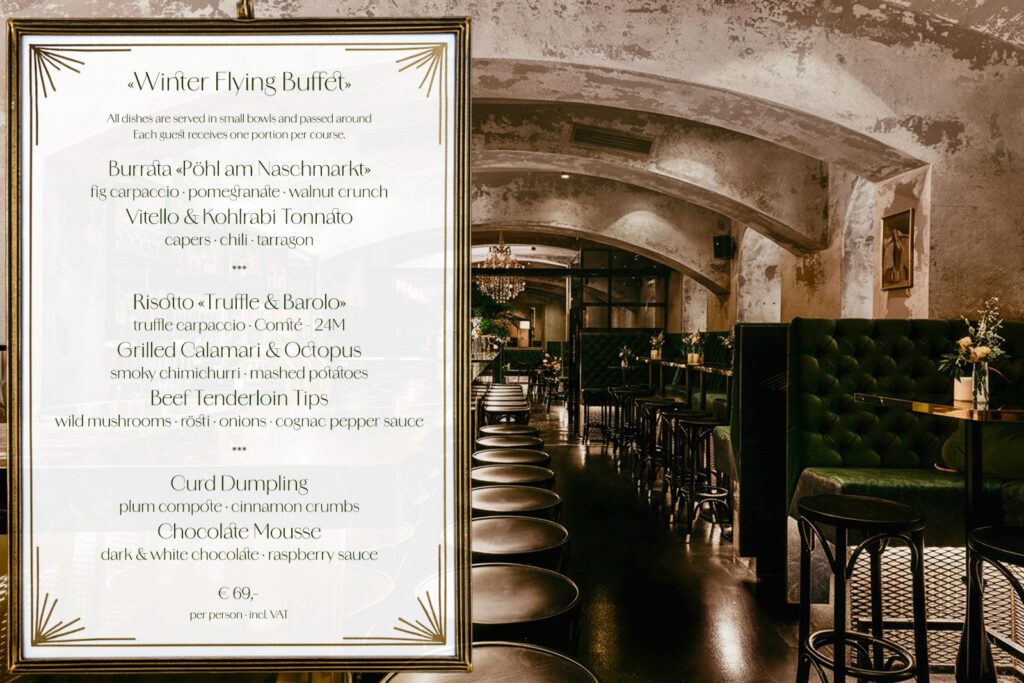 «Winter Flying Buffet»
All dishes are served in small bowls and passed around
Each guest receives one portion per course.
Burrata «Pöhl am Naschmarkt»
fig carpaccio · pomegranate · walnut crunch
Vitello & Kohlrabi Tonnato
capers · chili · tarragon
***
Risotto «Truffle & Barolo»
truffle carpaccio · Comté - 24M
Grilled Calamari & Octopus
smoky chimichurri · mashed potatoes
Beef Tenderloin Tips
wild mushrooms · rösti · onions · cognac pepper sauce
***
Curd Dumpling
plum compote · cinnamon crumbs
Chocolate Mousse
dark & white chocolate · raspberry sauce
€ 69,-
per person · incl. VAT